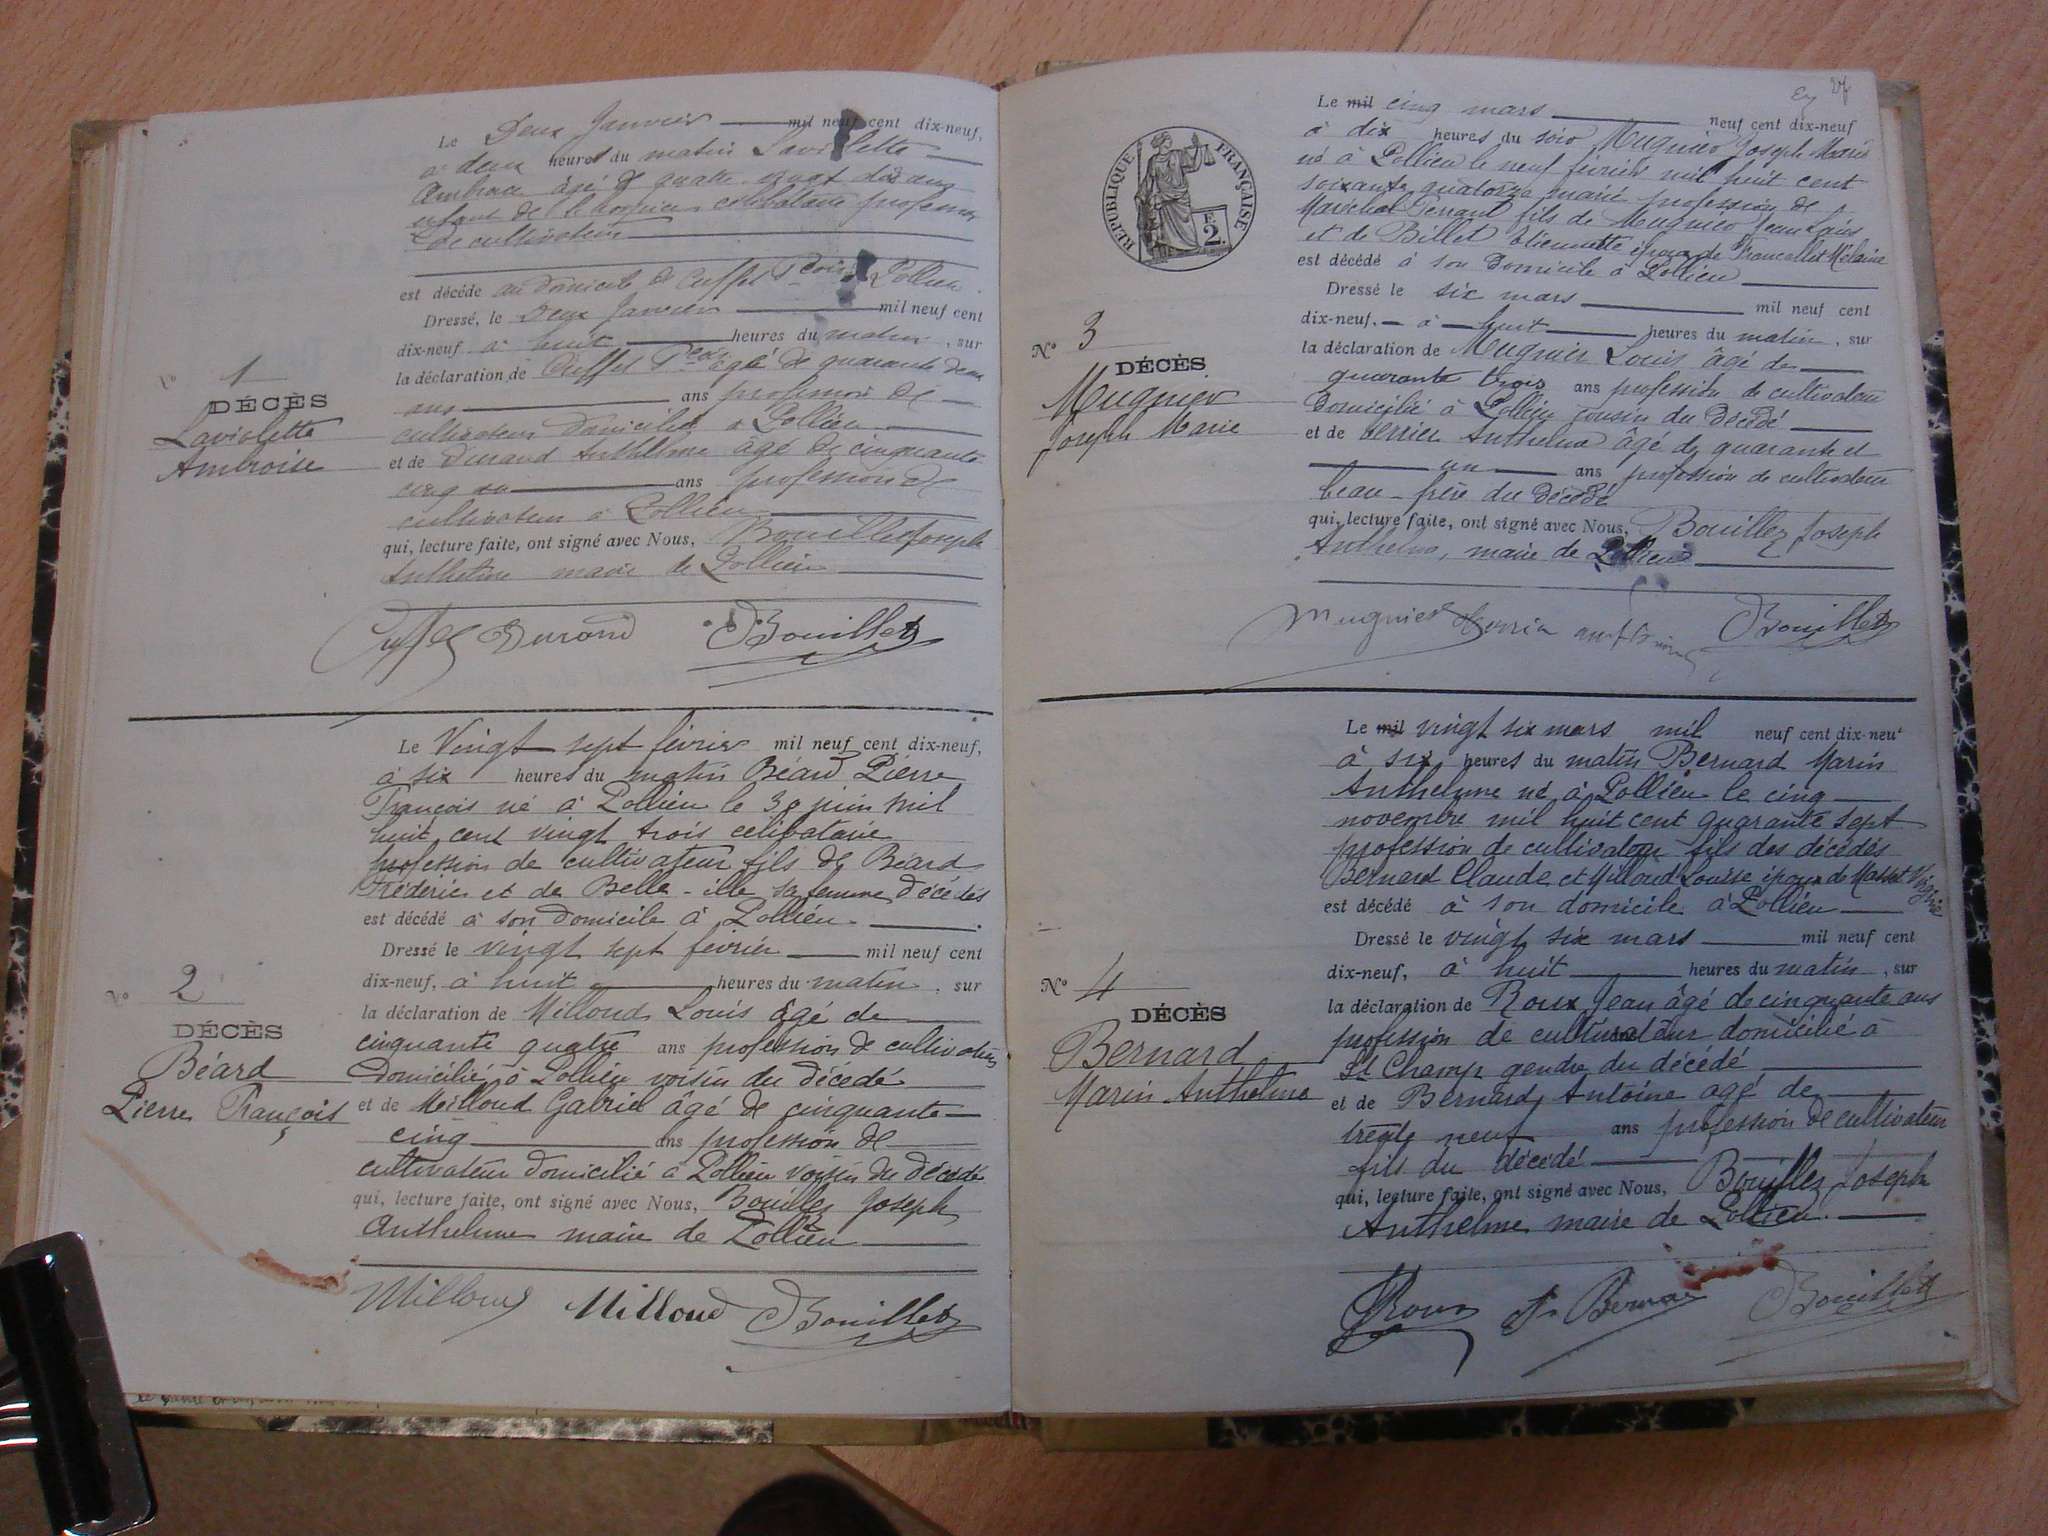 Le Deux Janvier mil neuf cent dix-neuf,
à deux heures du matin Laviolette
Ambroise âgé de quatre vingt dix ans
enfant de l'hospice célibataire profession
de cultivateur
est décédé au domicile de Cuffet à Pollieu
Dressé, le Deux Janvier mil neuf cent
dix-neuf à huit heures du matin, sur
la déclaration de Cuffet âgé de quarante deux
ans ans profession de
cultivateur domicilié à Pollieu
et de Durand Anthelme âgé de cinquante
cinq ans profession de
cultivateur à Pollieu
qui, lecture faite, ont signé avec Nous, Bouillet Joseph
Anthelme maire de Pollieu
Cuffet Durand Bouillet
N° 1
DÉCÈS
Laviolette
Ambroise
Le Vingt sept février mil neuf cent dix-neuf,
à six heures du matin Béard Pierre
François né à Pollieu le 30 juin mil
huit cent vingt trois célibataire
profession de cultivateur fils de Béard
Fréderic et de Belle-ille sa femme décédés
est décédé à son domicile à Pollieu.
Dressé le vingt sept février mil neuf cent
dix-neuf, à huit heures du matin, sur
la déclaration de Milloud Louis âgé de
cinquante quatre ans profession de cultivateur
domicilié à Pollieu voisin du décedé
et de Milloud Gabriel âgé de cinquante
cinq ans profession de
cultivateur domicilié à Pollieu voisin du décedé
qui, lecture faite, ont signé avec Nous, Bouillet Joseph
Anthelme maire de Pollieu
Milloud Milloud Bouillet
N° 2
DÉCÈS
Béard
Pierre François
RÉPUBLIQUE FRANÇAISE
2
Le mil cinq mars neuf cent dix-neuf
à dix heures du soir Mugnier Joseph Marie
né à Pollieu le neuf février mil huit cent
soixante quatorze marié profession de
Maréchal ferrant fils de Mugnier Jean Louis
et de Billet Etiennette époux de Francallet Mélanie
est décédé à son domicile à Pollieu
Dressé le six mars mil neuf cent
dix-neuf, à huit heures du matin, sur
la déclaration de Mugnier Louis âgé de
quarante trois ans profession de cultivateur
domicilié à Pollieu cousin du décédé
et de Berrier Anthelme âgé de quarante et
un ans profession de cultivateur
beau-frère du décédé
qui, lecture faite, ont signé avec Nous, Bouillet Joseph
Anthelme, maire de Pollieu
Mugnier Bouillet
N° 3
DÉCÈS
Mugnier
Joseph Marie
Le mil vingt six mars mil neuf cent dix-neuf
à six heures du matin Bernard Marin
Anthelme né à Pollieu le cinq
novembre mil huit cent quarante sept
profession de cultivateur fils des décédés
Bernard Claude et Milloud Louise époux de Masset Virginie
est décédé à son domicile à Pollieu
Dressé le vingt six mars mil neuf cent
dix-neuf, à huit heures du matin, sur
la déclaration de Roux Jean âgé de cinquante ans
profession de cultivateur domicilié à
St Champ gendre du décédé
et de Bernard Antoine agé de
trente neuf ans profession de cultivateur
fils du décédé
qui, lecture faite, ont signé avec Nous, Bouillet Joseph
Anthelme maire de Pollieu.
Roux Bernard Bouillet
N° 4
DÉCÈS
Bernard
Marin Anthelme